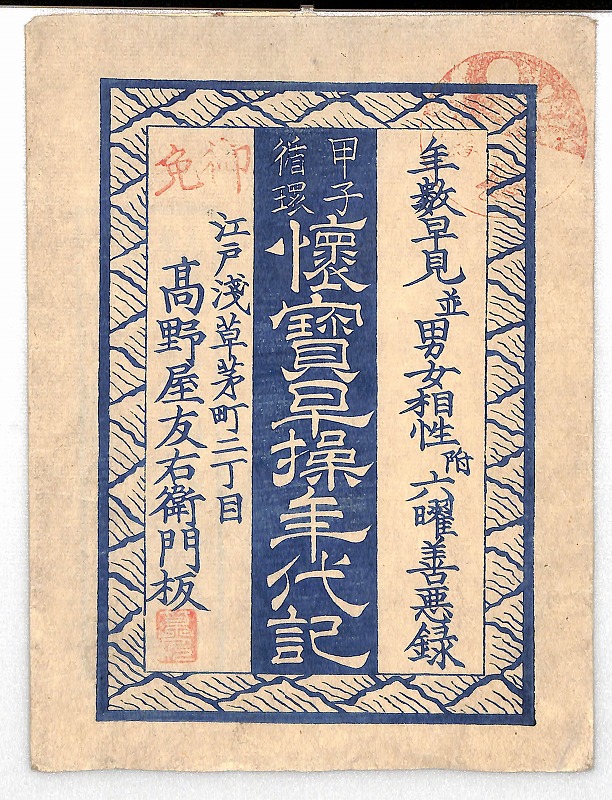 年數早見並男女相性附六曜善惡録
甲子
循環
懷寶早操年代記
御免
江戸淺草茅町二丁目
髙野屋友右衛門板